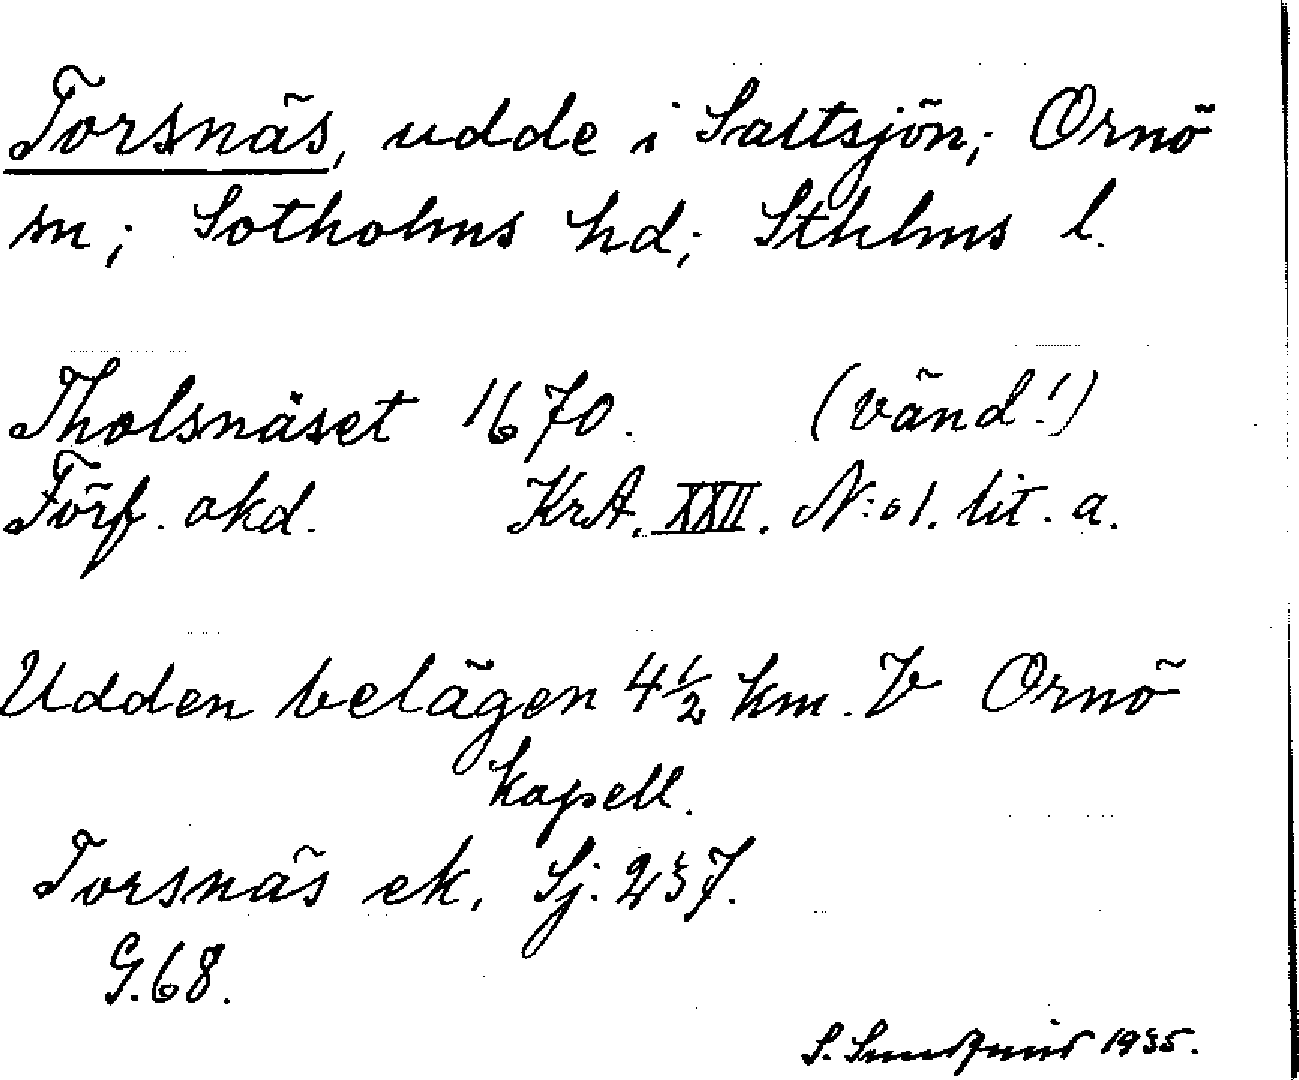 Torsnäs, udde i Saltsjön; Ornö
sn; Sotholms hd; Sthlms l.
Tholsnäset 1670. (vänd!)
Förf. okd. KrA. XXII. N:o 1. lit. a.
Udden belägen 4½ km. V Ornö
kapell.
Torsnäs ek. Sj. 237.
G. 68.
S. Sundqvist 1935.